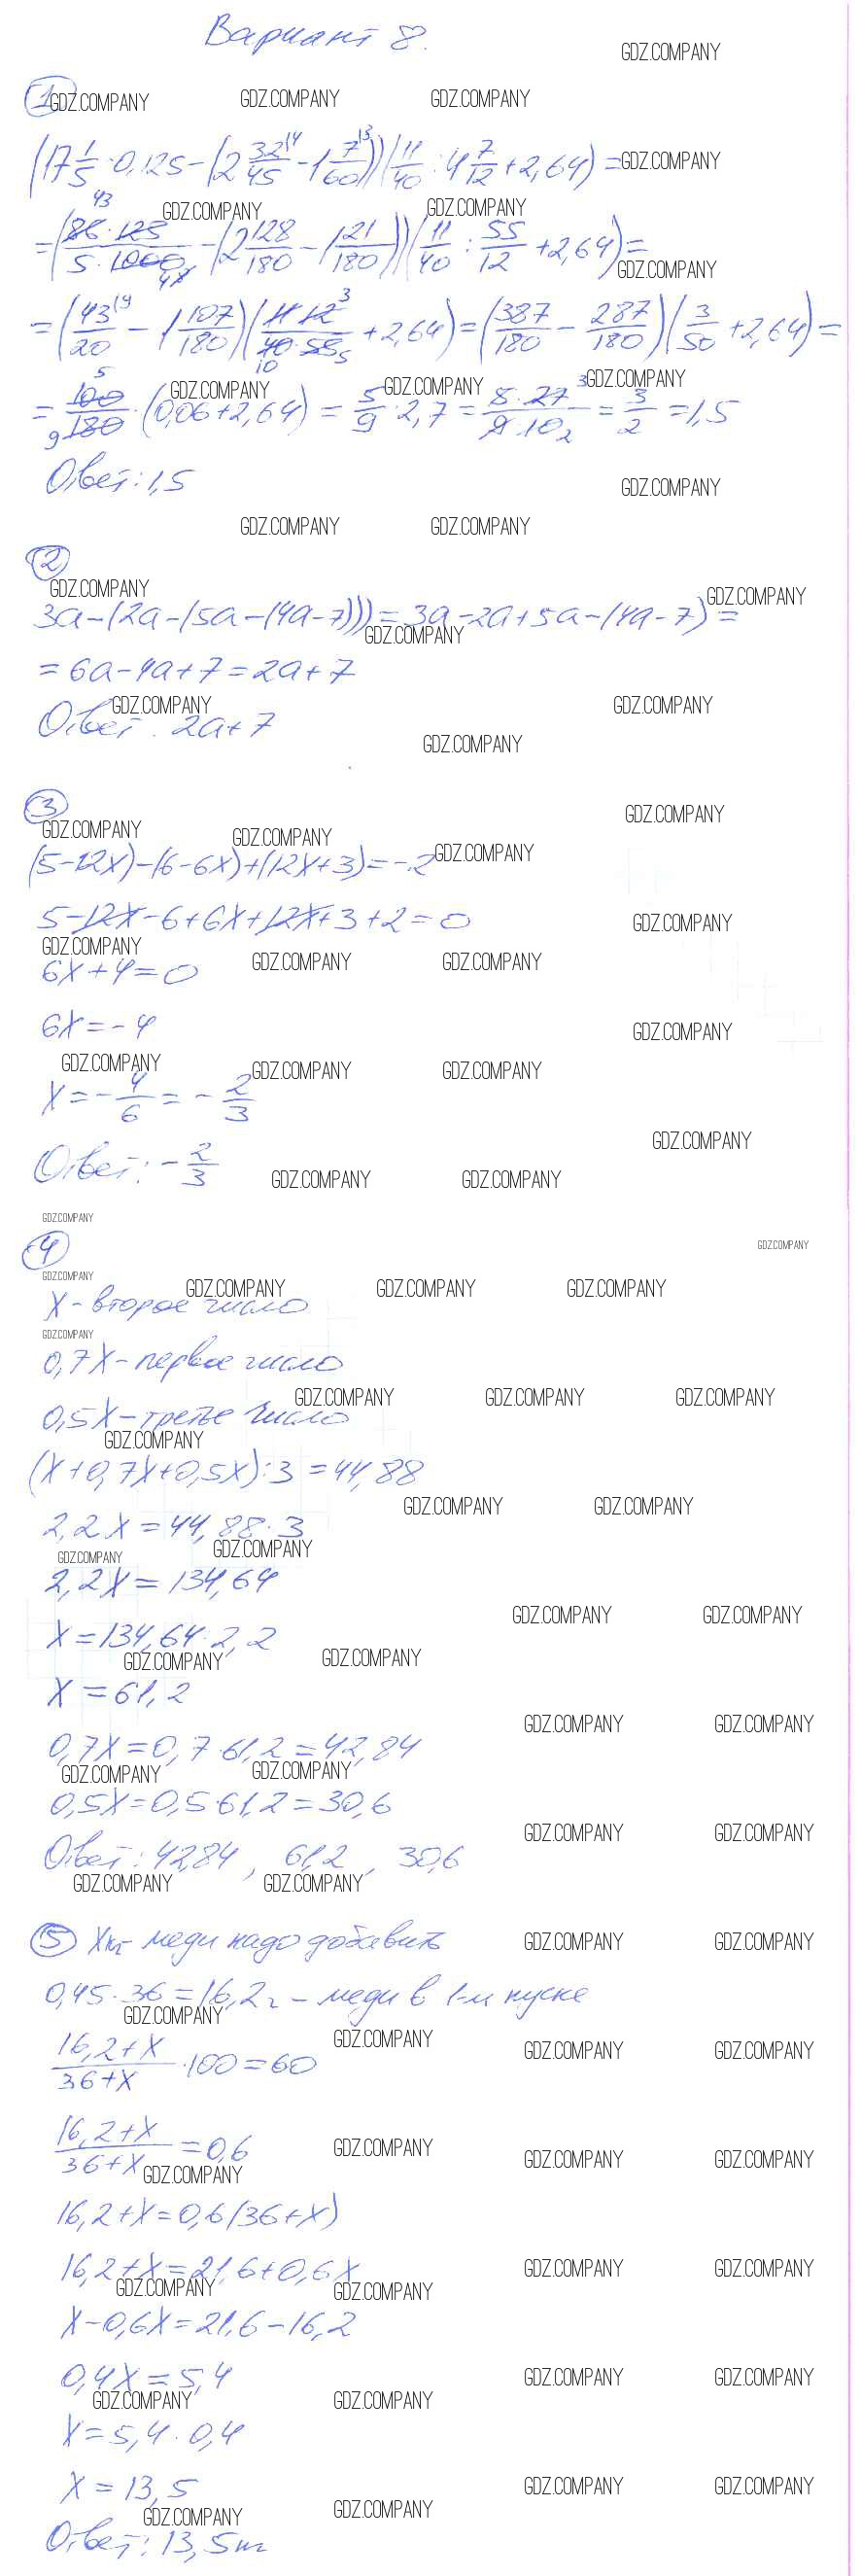 Вариант 8.
1
(17 1/5 · 0,125 - (2 32/45 - 1 7/60)) (11/40 : 4 7/12 + 2,64) =
= (86·125/5·1000 - (2 128/180 - 1 21/180)) (11/40 : 55/12 + 2,64) =
= (43/20 - 1 107/180) (11·12/40·55 + 2,64) = (387/180 - 287/180) (3/50 + 2,64) =
= 100/180 · (0,06 + 2,64) = 5/9 · 2,7 = 5·27/9·10 = 3/2 = 1,5
Ответ: 1,5
2
3а-(2а-(5а-(4а-7))) = 3а-2а+5а-(4а-7) =
= 6а-4а+7 = 2а+7
Ответ: 2а+7
3
(5-12х)-(6-6х)+(12х+3) = -2
5-12х-6+6х+12х+3+2=0
6х+4=0
6х=-4
х = -4/6 = -2/3
Ответ: -2/3
4
х - второе число
0,7х - первое число
0,5х - третье число
(х+0,7х+0,5х):3 = 44,88
2,2х = 44,88·3
2,2х = 134,64
х = 134,64:2,2
х = 61,2
0,7х = 0,7·61,2 = 42,84
0,5х = 0,5·61,2 = 30,6
Ответ: 42,84, 61,2, 30,6
5 хт - меди надо добавить
0,45·36 = 16,2т - меди в 1-м куске
16,2+х/36+х ·100 = 60
16,2+х/36+х = 0,6
16,2+х = 0,6(36+х)
16,2+х = 21,6+0,6х
х-0,6х = 21,6-16,2
0,4х = 5,4
х = 5,4:0,4
х = 13,5
Ответ: 13,5т
GDZ.COMPANY